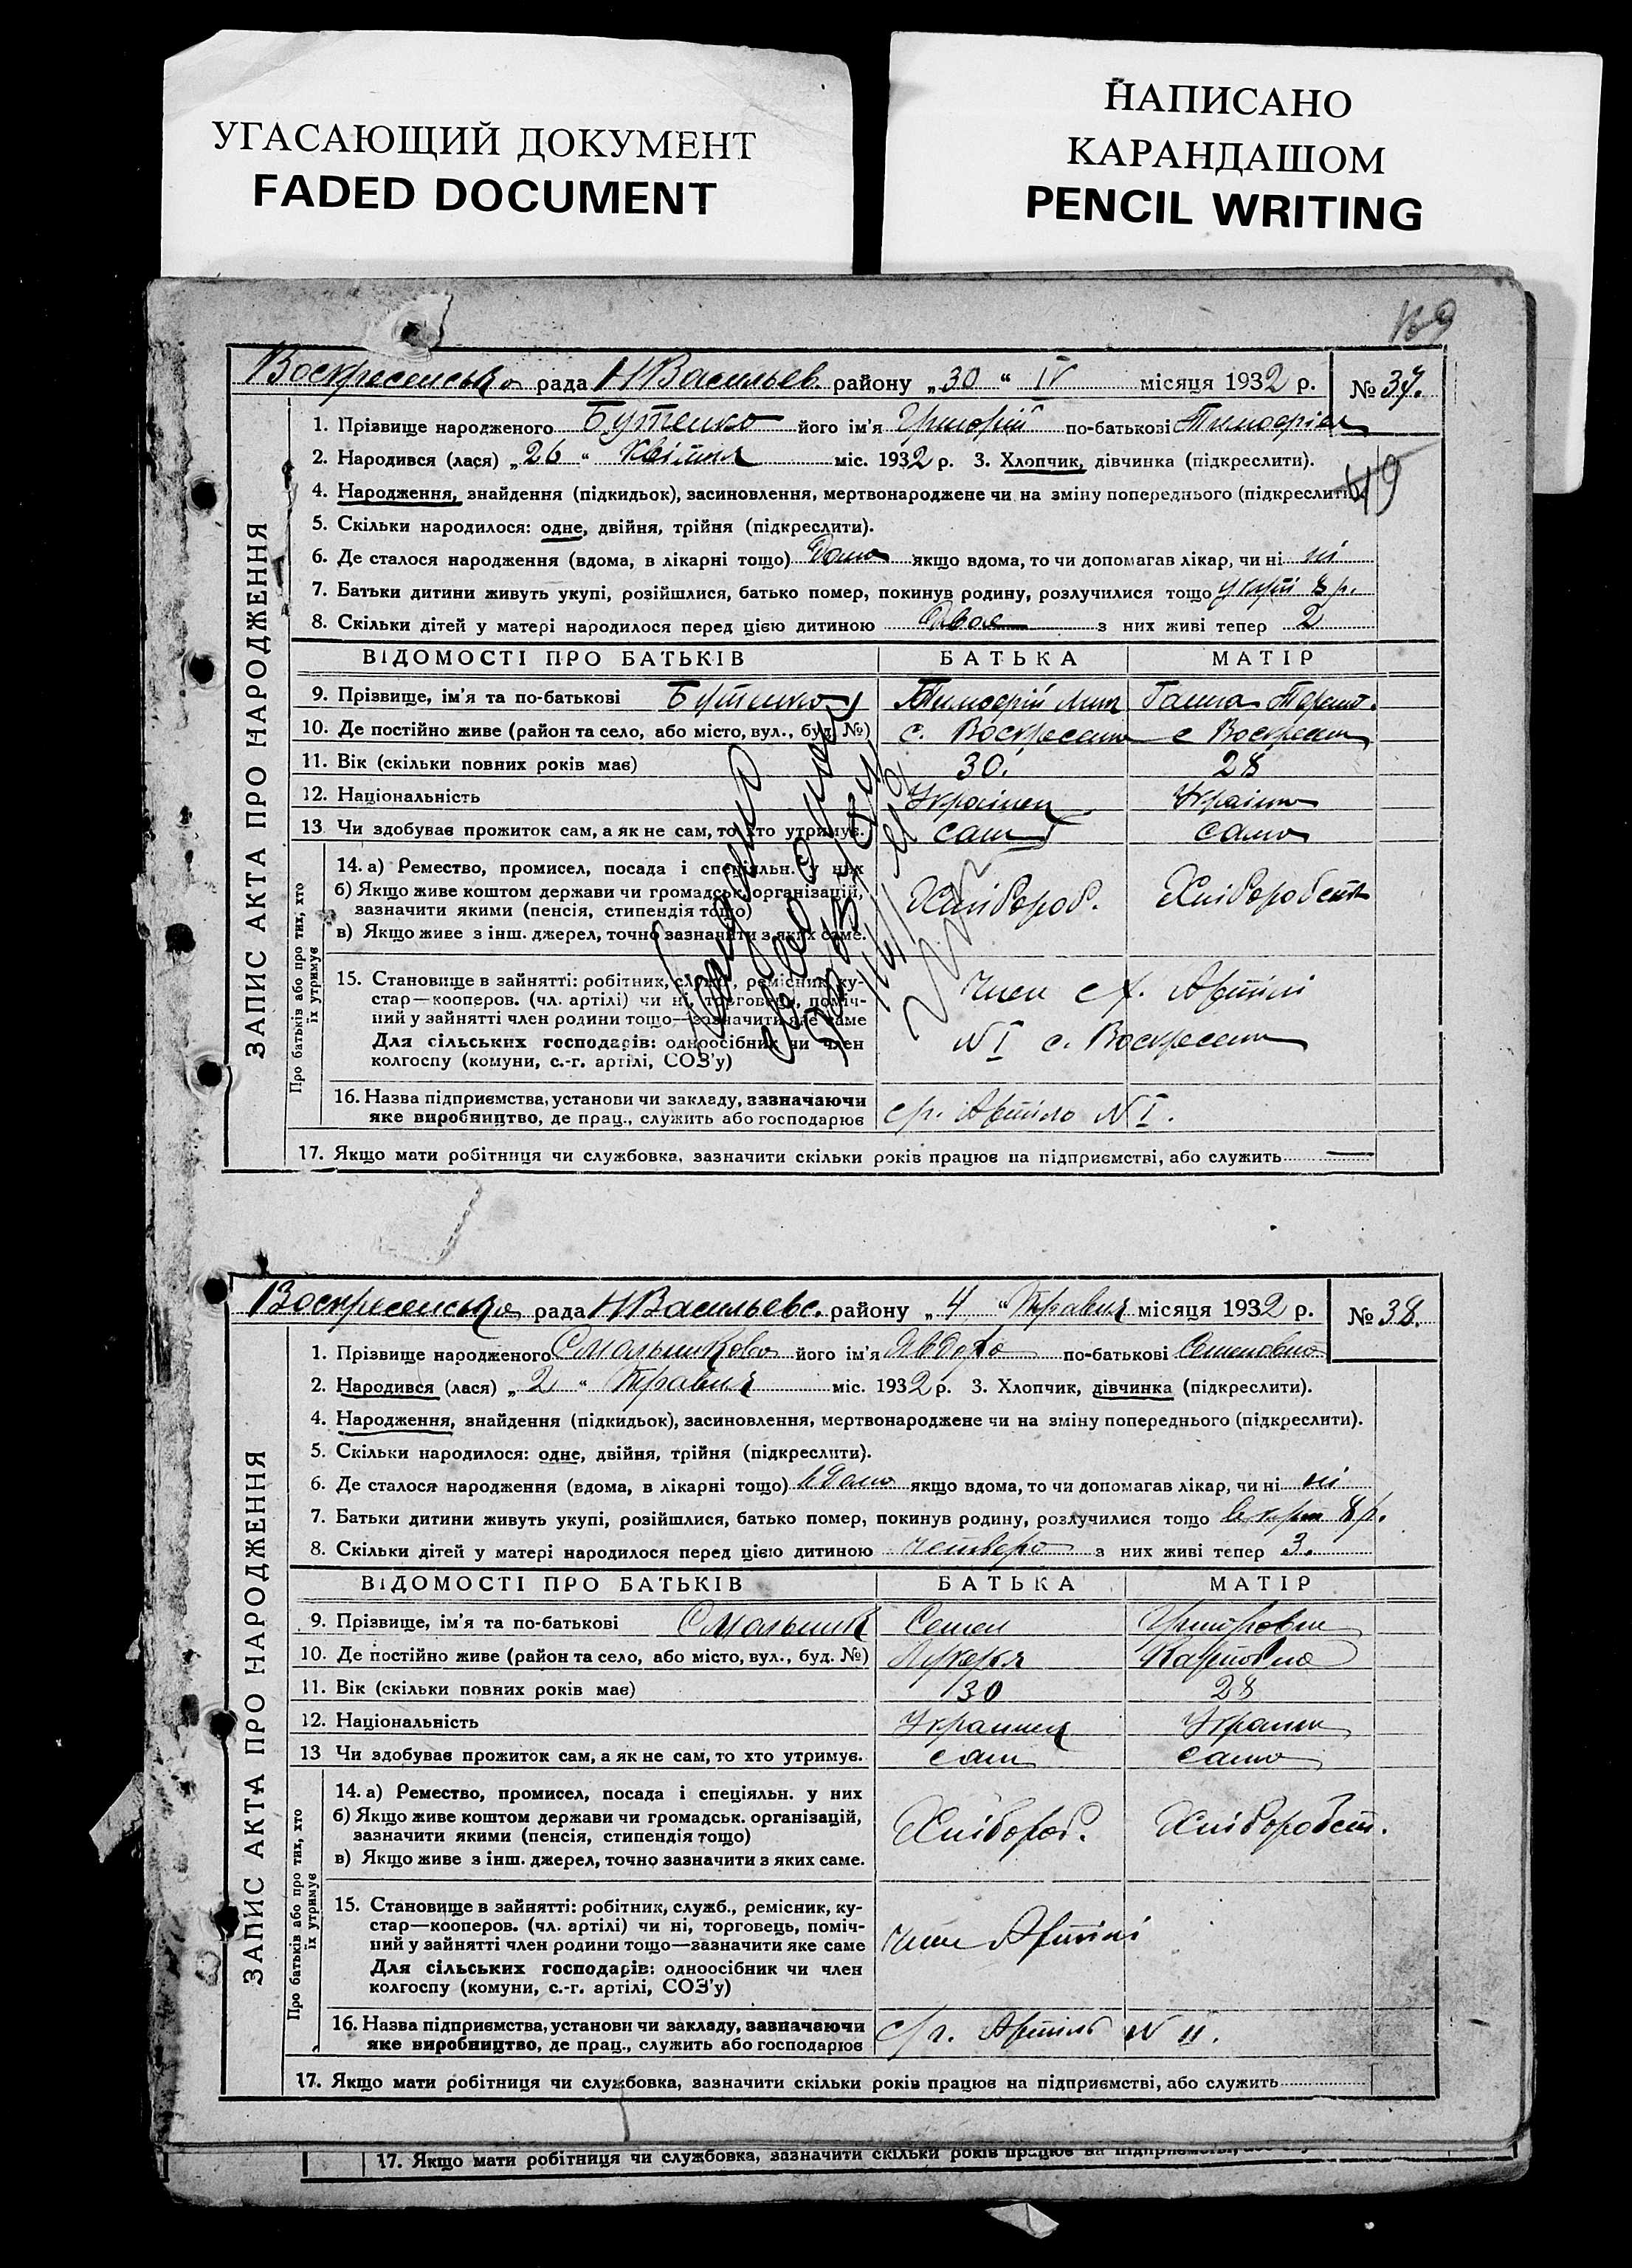 УГАСАЮЩИЙ ДОКУМЕНТ
FADED DOCUMENT
НАПИСАНО
КАРАНДАШОМ
PENCIL WRITING
Воскресенська рада Н Васильев. району „30“ IV місяця 1932 р. № 37.
ЗАПИС АКТА ПРО НАРОДЖЕННЯ
1. Прізвище народженого Бутенко його ім'я Григорій по-батькові
2. Народився (лася) „26“ Квітня міс. 1932 р. 3. Хлопчик, дівчинка (підкреслити).
4. Народження, знайдення (підкидьок), засиновлення, мертвонароджене чи на зміну попереднього (підкреслити).
49
5. Скільки народилося: одне, двійня, трійня (підкреслити).
6. Де сталося народження (вдома, в лікарні тощо) Дома якщо вдома, то чи допомагав лікар, чи ні ні
7. Батьки дитини живуть укупі, розійшлися, батько помер, покинув родину, розлучилися тощо укупі 8 р.
8. Скільки дітей у матері народилося перед цією дитиною Двое з них живі тепер 2
ВІДОМОСТІ ПРО БАТЬКІВ БАТЬКА МАТІР
9. Прізвище, ім'я та по-батькові Бутенко Тимофій Ганна
10. Де постійно живе (район та село, або місто, вул., буд. №) с. Воскресенка с Воскресен
11. Вік (скільки повних років має) 30. 28
12. Національність Украінец Украінка
13 Чи здобував прожиток сам, а як не сам, то хто утримує. сам сама
Про батьків або про тих, хто їх утримує
14. а) Ремество, промисел, посада і спеціяльн. у них
б) Якщо живе коштом держави чи громадськ. організацій,
зазначити якими (пенсія, стипендія тощо)
в) Якщо живе з інш. джерел, точно зазначити з яких саме.
Хлібороб. Хліборобств
15. Становище в зайнятті: робітник, служб., ремісник, ку-
стар—кооперов. (чл. артілі) чи ні, торговець, поміч-
ний у зайнятті член родини тощо—зазначити яке саме
Для сільських господарів: одноосібник чи член
колгоспу (комуни, с.-г. артілі, СОЗ'у)
Член с/г. Артілі
№ I с. Воскресенк
16. Назва підприємства, установи чи закладу, зазначаючи
яке виробництво, де прац., служить або господарює
с/г. Артіль № I.
17. Якщо мати робітниця чи службовка, зазначити скільки років працює на підприємстві, або служить —
Воскресенська рада Н Васильевс. району „4“ Травня місяця 1932 р. № 38.
ЗАПИС АКТА ПРО НАРОДЖЕННЯ
1. Прізвище народженого його ім'я Явдоха по-батькові Семеновна
2. Народився (лася) „2“ Травня міс. 1932 р. 3. Хлопчик, дівчинка (підкреслити).
4. Народження, знайдення (підкидьок), засиновлення, мертвонароджене чи на зміну попереднього (підкреслити).
5. Скільки народилося: одне, двійня, трійня (підкреслити).
6. Де сталося народження (вдома, в лікарні тощо) вдома якщо вдома, то чи допомагав лікар, чи ні ні
7. Батьки дитини живуть укупі, розійшлися, батько помер, покинув родину, розлучилися тощо 8 р.
8. Скільки дітей у матері народилося перед цією дитиною четверо з них живі тепер 3.
ВІДОМОСТІ ПРО БАТЬКІВ БАТЬКА МАТІР
9. Прізвище, ім'я та по-батькові Семен
10. Де постійно живе (район та село, або місто, вул., буд. №) Карповна
11. Вік (скільки повних років має) 30 28
12. Національність Украинец Украин
13 Чи здобував прожиток сам, а як не сам, то хто утримує. сам сама
Про батьків або про тих, хто їх утримує
14. а) Ремество, промисел, посада і спеціяльн. у них
б) Якщо живе коштом держави чи громадськ. організацій,
зазначити якими (пенсія, стипендія тощо)
в) Якщо живе з інш. джерел, точно зазначити з яких саме.
Хлібороб. Хліборобст.
15. Становище в зайнятті: робітник, служб., ремісник, ку-
стар—кооперов. (чл. артілі) чи ні, торговець, поміч-
ний у зайнятті член родини тощо—зазначити яке саме
Для сільських господарів: одноосібник чи член
колгоспу (комуни, с.-г. артілі, СОЗ'у)
Член Артілі
16. Назва підприємства, установи чи закладу, зазначаючи
яке виробництво, де прац., служить або господарює
с/г. Артіль № 11.
17. Якщо мати робітниця чи службовка, зазначити скільки років працює на підприємстві, або служить
17. Якщо мати робітниця чи службовка, зазначити скільки років працює на підприємстві,